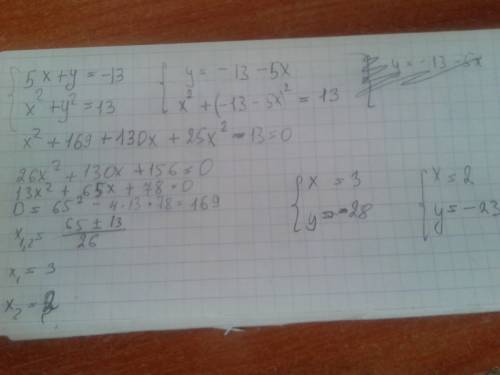 5x + y = -13
x² + y² = 13
y = -13 - 5x
x² + (-13 - 5x)² = 13
y = -13 - 5x
x² + 169 + 130x + 25x² - 13 = 0
26x² + 130x + 156 = 0
13x² + 65x + 78 = 0
D = 65² - 4·13·78 = 169
x₁,₂ = (65 ± 13)/26
x₁ = 3
x₂ = 2
x = 3
y = -28
x = 2
y = -23